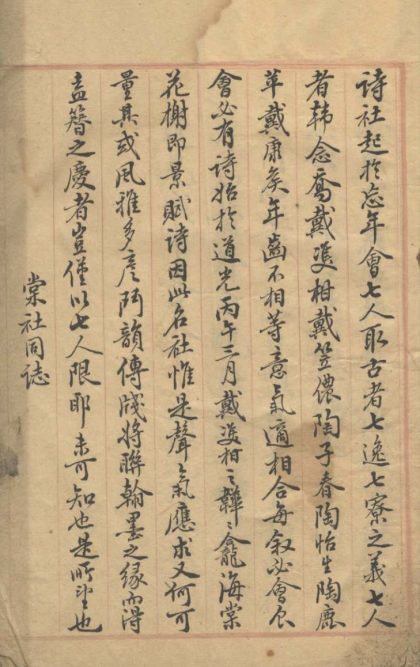 诗社起於忘年會七人取古者七逸七寮之義七人
者韩念喬戴瓊相戴笠儂陶子春陶怡生陶鹿
苹戴康矦年齒不相等意氣適相合每叙必會食
會必有诗始於道光丙午三月戴瓊相之韡韡龕海棠
花榭即景賦诗因此名社惟是聲氣應求又何可
量其或風雅多彦鬥韻傳牋將聯翰墨之缘而得
盍簪之慶者豈僅以七人限耶未可知也是所望也
棠社同誌